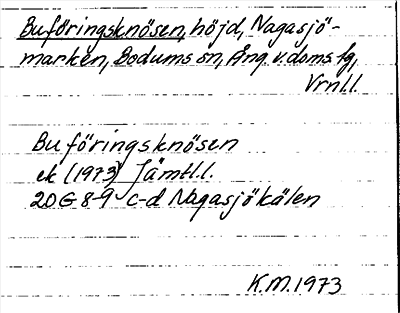 Buföringsknösen, höjd, Nagasjö-
marken, Bodums sn, Ång. v. doms fg,
Vrnl.l.
Buföringsknösen
ek (1973) Jämtl.l.
20G 8-9 c-d Nagasjökälen
K.M. 1973